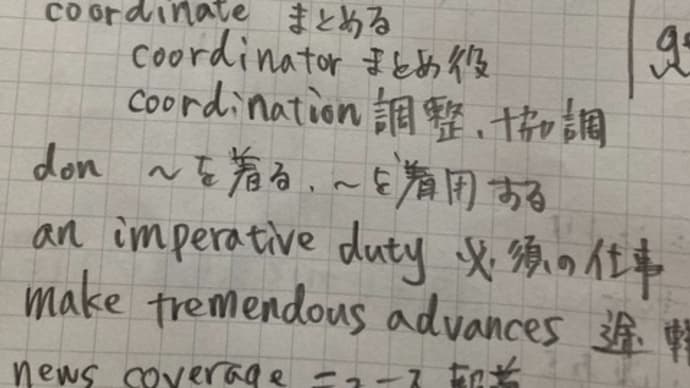 coordinate まとめる
coordinator まとめ役
coordination 調整、協調
don ～を着る、～を着用する
an imperative duty 必須の仕事
make tremendous advances
news coverage ニュース報道